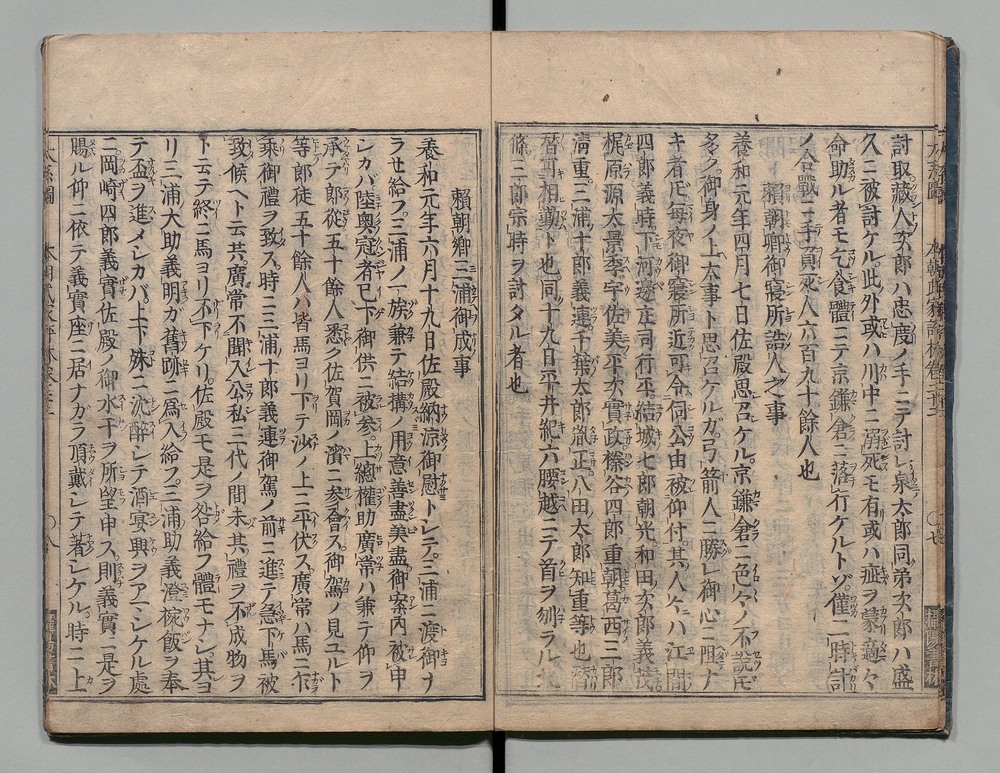 討取藏人次郎ハ忠度ノ手ニテ討レ泉太郎同弟次郎ハ盛
久ニ被討ケル此外或ハ川中ニ溺死モ有或ハ疵ヲ蒙適々
命助ル者モ乞食ノ體ニテ京鎌倉ニ落行ケルトゾ僅二時計
ノ合戰ニ手負死人六百九十餘人也
賴朝卿御寢所詰人之事
養和元年四月七日佐殿思召ケル京鎌倉ニ色々ノ不說𪜈
多ク御身ノ上大事ト思召ケルガ弓箭人ニ勝レ御心ニ阻ナ
キ者𪜈每夜御寢所近可令伺公由被仰付其人々ハ江間
四郎義時下河邊庄司行平結城七郎朝光和田次郎義茂
梶原源太景季宇佐美平次實政榛谷四郎重朝葛西三郎
淸重三浦十郎義連千葉太郎胤正八田太郎知重等也
暦可相勤ト也同十九日平井紀六腰越ニテ首ヲ刎ラル北
條三郎宗時ヲ討タル者也
賴朝卿三浦御成事
養和元年六月十九日佐殿納涼御慰トシテ三浦ニ渡御ナ
ラセ給フ三浦ノ一族兼テ結構ノ用意善盡美盡御案內被申
シカバ陸奧冠者已下御供ニ被參上總權助廣常ハ兼テ仰ヲ
承テ郎從五十餘人悉ク佐賀岡ノ濱ニ參會ス御駕ノ見ユルト
等郎徒五十餘人ハ皆馬ヨリ下テ沙ノ上ニ平伏ス廣常ハ馬ニ乍
乘御禮ヲ致ス時ニ三浦十郎義連御駕ノ前ニ進テ急下馬被
致候ヘト云共廣常不聞入公私三代ノ間未其禮ヲ不成物ヲ
ト云テ終ニ馬ヨリ不下ケリ佐殿モ是ヲ咎給フ體モナシ其ヨ
リ三浦大助義明ガ舊跡ニ爲入給フ三浦助義澄椀飯ヲ奉
テ盃ヲ進メシカバ上下殊ニ沈醉シテ酒宴興ヲアマシケル處
ニ岡崎四郎義實佐殿ノ御水干ヲ所望申ス則義實ニ是ヲ
賜ル仰ニ依テ義實座ニ居ナガラ頂戴シテ著シケル時ニ上